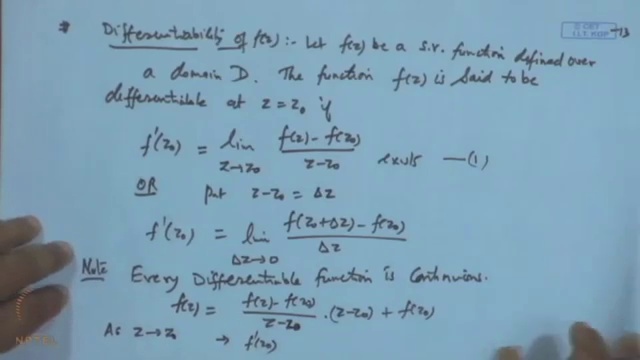 * Differentiability of f(z) :- Let f(z) be a s.v. function defined over
a domain D. The function f(z) is said to be
differentiable at z = z₀ if
f'(z₀) = lim_{z→z₀} (f(z) - f(z₀))/(z - z₀) exists —(1)
OR put z - z₀ = Δz
f'(z₀) = lim_{Δz→0} (f(z₀+Δz) - f(z₀))/Δz
Note Every Differentiable function is continuous.
f(z) = (f(z) - f(z₀))/(z - z₀) · (z - z₀) + f(z₀)
As z → z₀ → f'(z₀)
NPTEL